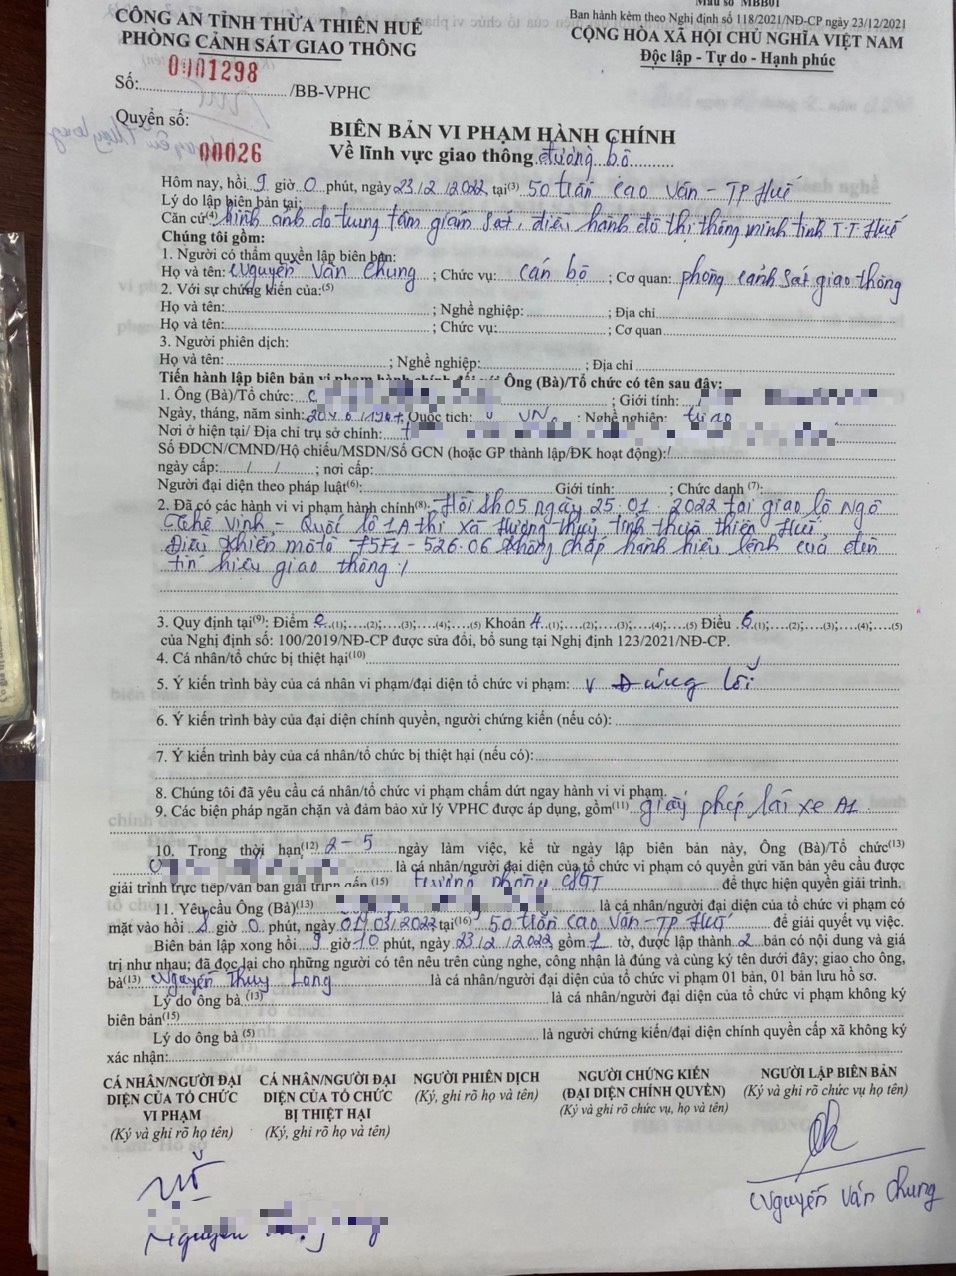 Mẫu số MBB01
CÔNG AN TỈNH THỪA THIÊN HUẾ
Ban hành kèm theo Nghị định số 118/2021/NĐ-CP ngày 23/12/2021
PHÒNG CẢNH SÁT GIAO THÔNG
CỘNG HÒA XÃ HỘI CHỦ NGHĨA VIỆT NAM
Độc lập - Tự do - Hạnh phúc
Số: 0001298 /BB-VPHC
Quyển số: 00026
BIÊN BẢN VI PHẠM HÀNH CHÍNH
Về lĩnh vực giao thông đường bộ
Hôm nay, hồi 9 giờ 0 phút, ngày 23/2/2022 tại(3) 50 trần cao Vân - TP Huế
Lý do lập biên bản tại:
Căn cứ(4) hình ảnh do trung tâm giám sát, điều hành đô thị thông minh tỉnh T.T Huế
Chúng tôi gồm:
1. Người có thẩm quyền lập biên bản:
Họ và tên: Nguyễn Văn Chung ; Chức vụ: cán bộ ; Cơ quan: phòng cảnh sát giao thông
2. Với sự chứng kiến của:(5)
Họ và tên: ; Nghề nghiệp: ; Địa chỉ
Họ và tên: ; Chức vụ: ; Cơ quan
3. Người phiên dịch:
Họ và tên: ; Nghề nghiệp: ; Địa chỉ
Tiến hành lập biên bản vi phạm hành chính đối với Ông (Bà)/Tổ chức có tên sau đây:
1. Ông (Bà)/Tổ chức: ; Giới tính:
Ngày, tháng, năm sinh: Quốc tịch: VN ; Nghề nghiệp: tự do
Nơi ở hiện tại/ Địa chỉ trụ sở chính:
Số ĐDCN/CMND/Hộ chiếu/MSDN/Số GCN (hoặc GP thành lập/ĐK hoạt động):
ngày cấp: / / ; nơi cấp:
Người đại diện theo pháp luật(6): Giới tính: ; Chức danh (7):
2. Đã có các hành vi vi phạm hành chính(8): Hồi 5h05 ngày 25.01.2022 tại giao lộ Ngô
Thế Vinh - Quốc lộ 1A thị xã Hương thủy tỉnh thừa thiên Huế
Điều khiển môtô 75F1-526.06 không chấp hành hiệu lệnh của đèn
tín hiệu giao thông /
3. Quy định tại(9): Điểm e.(1);...(2);...(3);...(4);...(5) Khoản 4.(1);...(2);...(3);...(4);...(5) Điều .6.(1);...(2);...(3);...(4);...(5)
của Nghị định số: 100/2019/NĐ-CP được sửa đổi, bổ sung tại Nghị định 123/2021/NĐ-CP.
4. Cá nhân/tổ chức bị thiệt hại(10)
5. Ý kiến trình bày của cá nhân vi phạm/đại diện tổ chức vi phạm: V Đúng lỗi
6. Ý kiến trình bày của đại diện chính quyền, người chứng kiến (nếu có):
7. Ý kiến trình bày của cá nhân/tổ chức bị thiệt hại (nếu có):
8. Chúng tôi đã yêu cầu cá nhân/tổ chức vi phạm chấm dứt ngay hành vi vi phạm.
9. Các biện pháp ngăn chặn và đảm bảo xử lý VPHC được áp dụng, gồm(11) giấy phép lái xe A1
10. Trong thời hạn(12) 2-5 ngày làm việc, kể từ ngày lập biên bản này, Ông (Bà)/Tổ chức(13)
là cá nhân/người đại diện của tổ chức vi phạm có quyền gửi văn bản yêu cầu được
giải trình trực tiếp/văn bản giải trình đến (15) trưởng phòng CSGT để thực hiện quyền giải trình.
11. Yêu cầu Ông (Bà)(13) là cá nhân/người đại diện của tổ chức vi phạm có
mặt vào hồi 8 giờ 0 phút, ngày 01/03/2022 tại(16) 50 trần cao Vân - TP Huế để giải quyết vụ việc.
Biên bản lập xong hồi 9 giờ 10 phút, ngày 23/2/2022 gồm 1 tờ, được lập thành 2 bản có nội dung và giá
trị như nhau; đã đọc lại cho những người có tên nêu trên cùng nghe, công nhận là đúng và cùng ký tên dưới đây; giao cho ông,
bà(13) Nguyễn Thuỵ Long là cá nhân/người đại diện của tổ chức vi phạm 01 bản, 01 bản lưu hồ sơ.
Lý do ông bà (13) là cá nhân/người đại diện của tổ chức vi phạm không ký
biên bản(15)
Lý do ông bà (5) là người chứng kiến/đại diện chính quyền cấp xã không ký
xác nhận:
CÁ NHÂN/NGƯỜI ĐẠI DIỆN CỦA TỔ CHỨC VI PHẠM
(Ký và ghi rõ họ tên)
CÁ NHÂN/NGƯỜI ĐẠI DIỆN CỦA TỔ CHỨC BỊ THIỆT HẠI
(Ký, ghi rõ họ và tên)
NGƯỜI PHIÊN DỊCH
(Ký, ghi rõ họ và tên)
NGƯỜI CHỨNG KIẾN
(ĐẠI DIỆN CHÍNH QUYỀN)
(Ký và ghi rõ chức vụ, họ và tên)
NGƯỜI LẬP BIÊN BẢN
(Ký, ghi rõ chức vụ họ và tên)
Nguyễn
Nguyễn Văn Chung